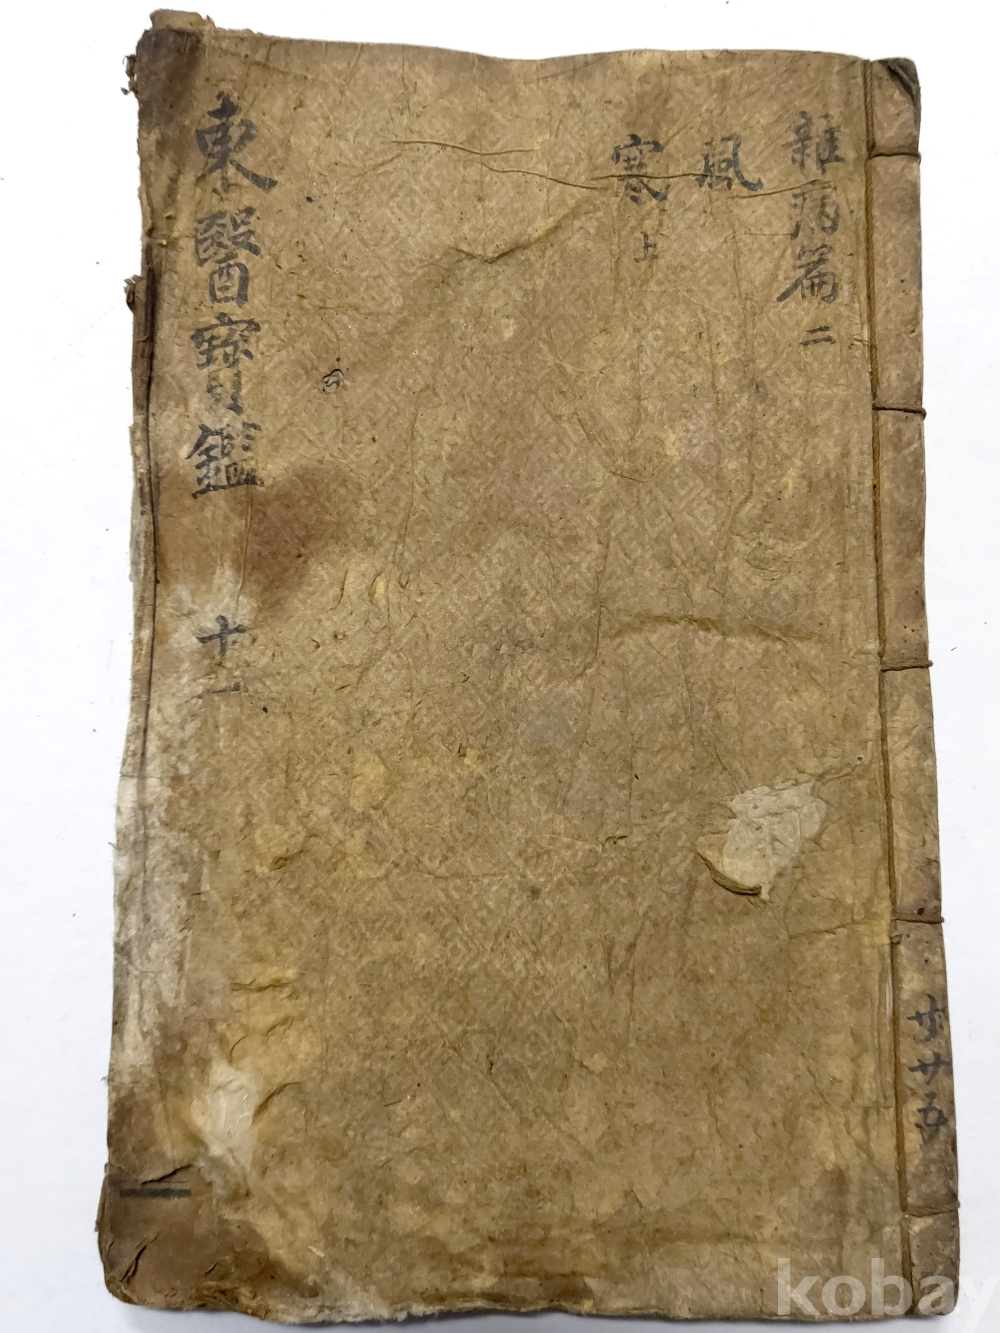 雜病篇 二
風
寒 上
東醫寶鑑 十一
共廿五
kobay